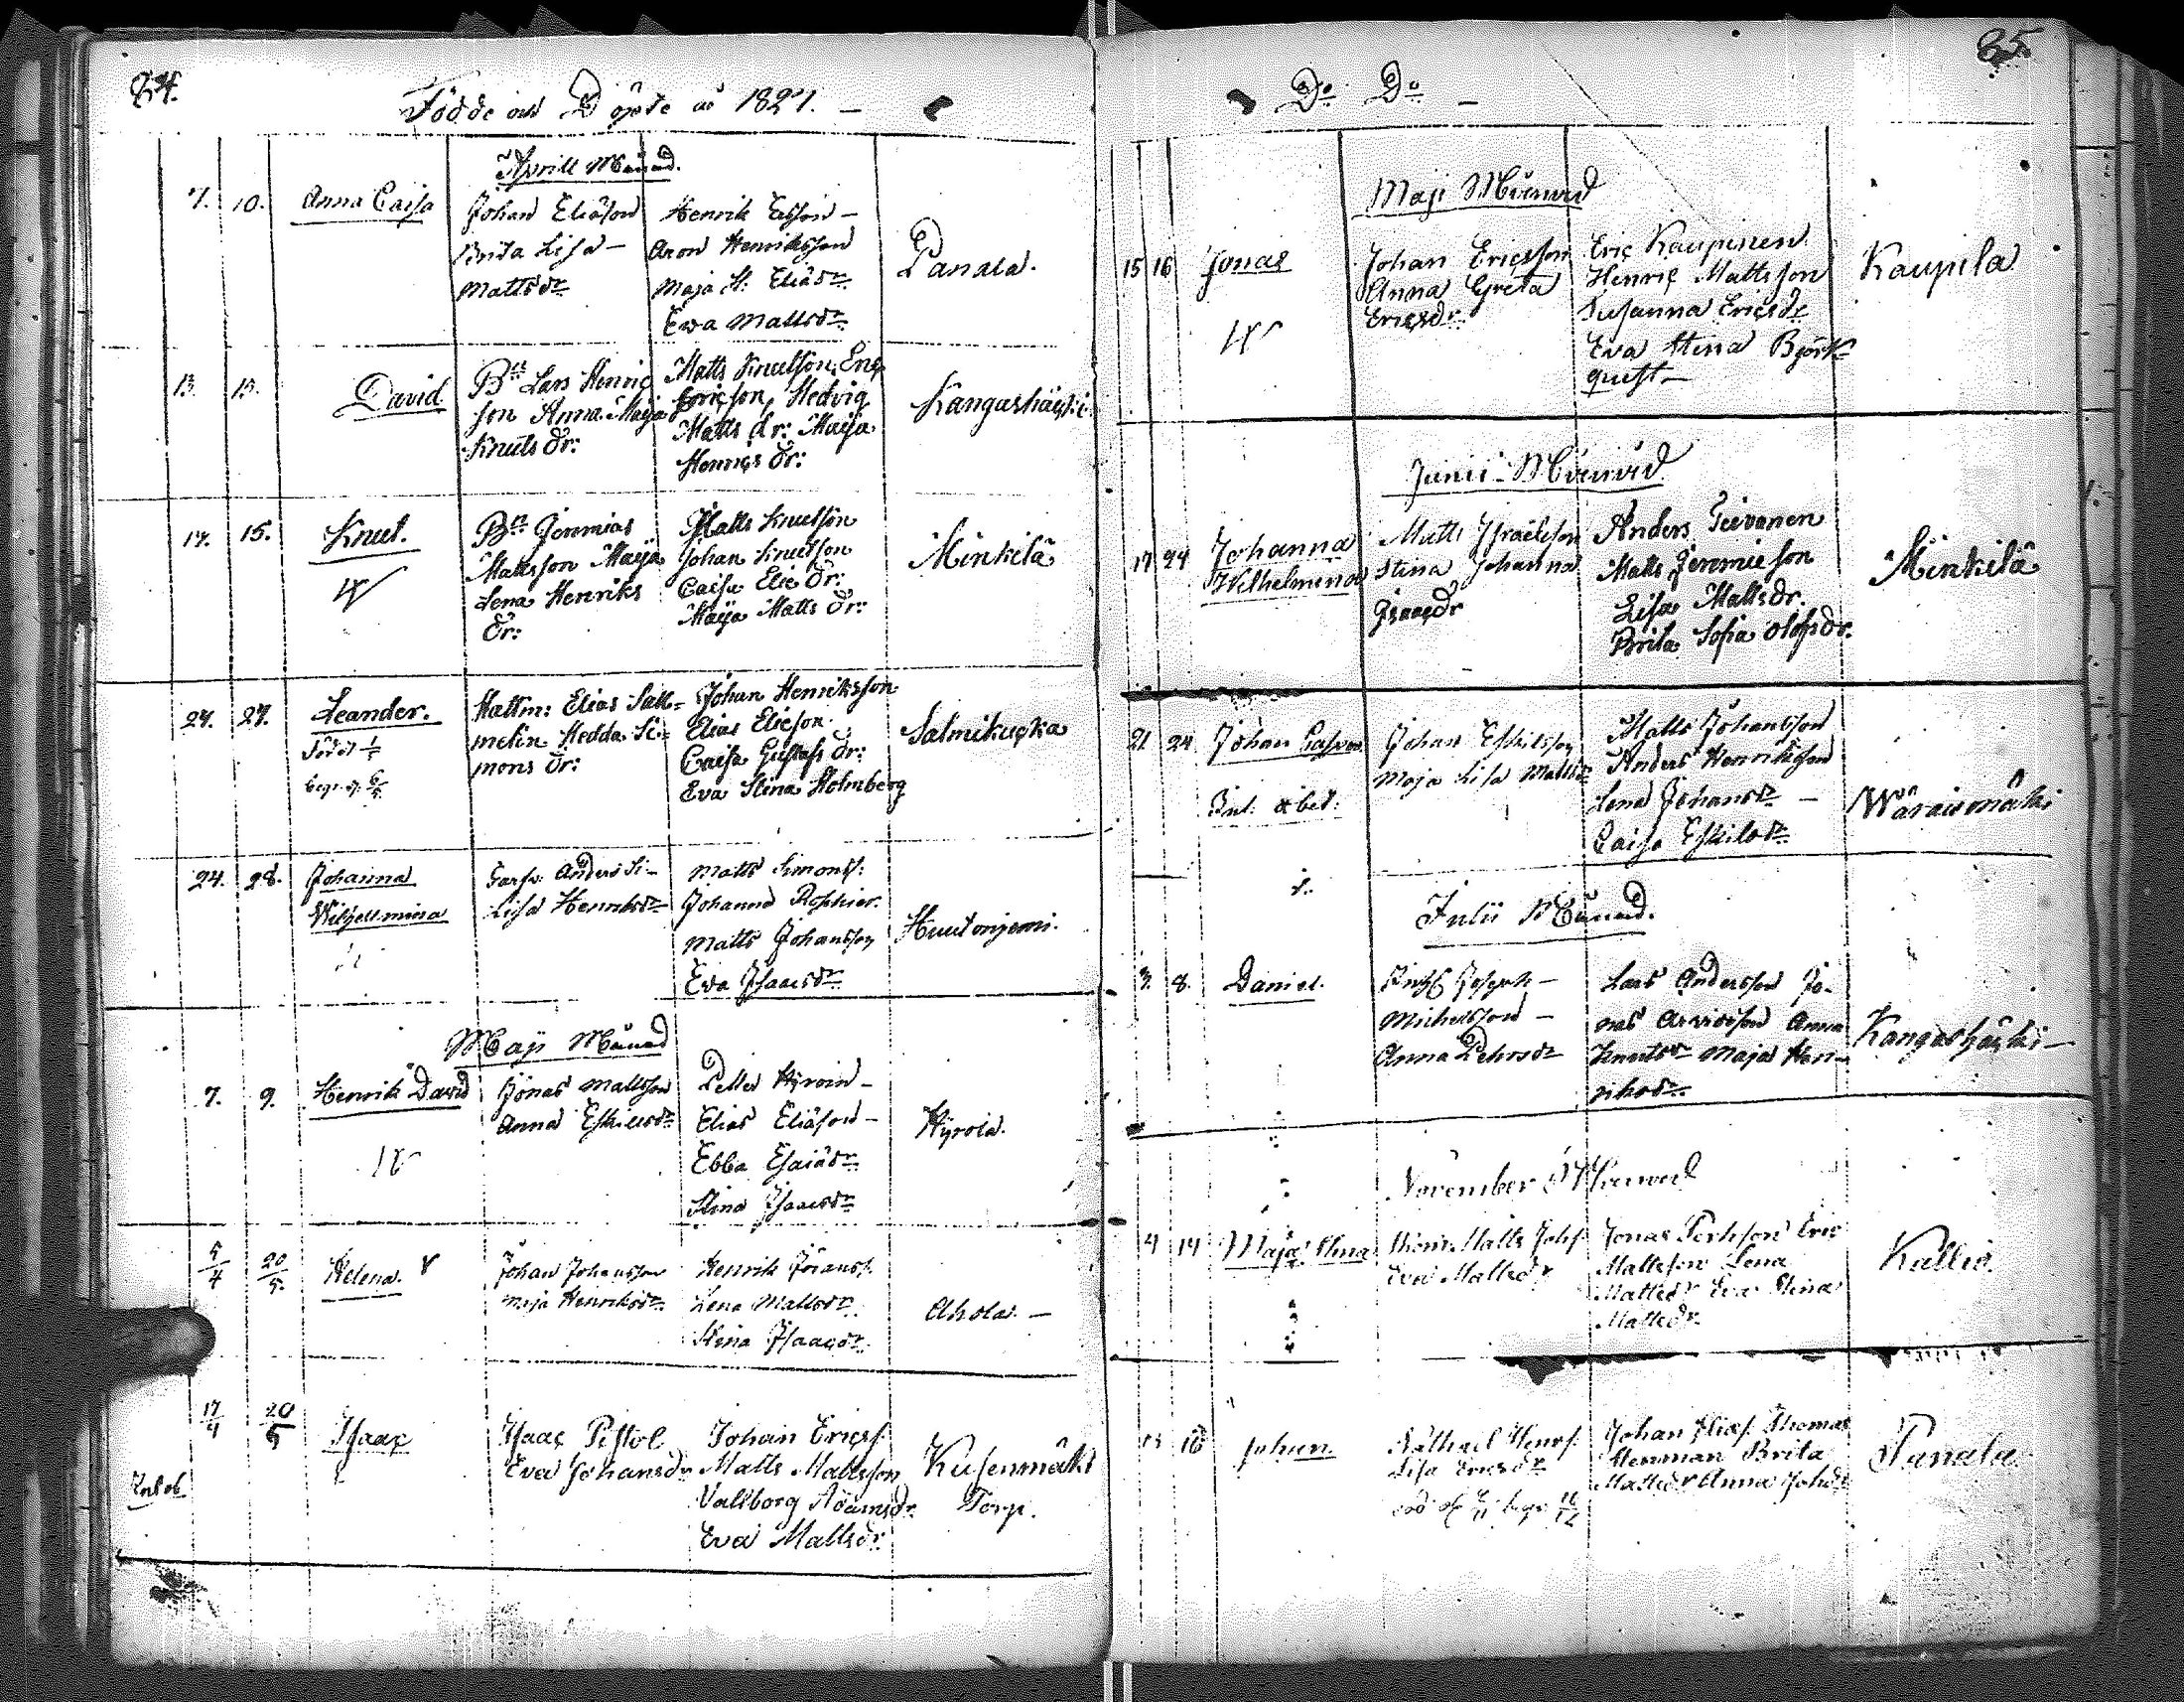 84.
Födde och Döpte år 1827.
Aprill Månad.
7. 10. Anna Caisa
Johan Eliäson
Brita Lisa
Mattsdr
Henrik
Aron Henriksson
Maja H. Eliäsdr
Ewa Mattsdr
Panala.
13. 15. David
Bn Lars Henriç
son Anna Maija
Knuts dr:
Matts Knutsson, Eriç
Ericson, Hedvig
Matts dr: Maija
Henriçs dr:
Kangashäçki
14. 15. Knut.
Bn Jeremias
Mattsson Maija
Lena Henriks
dr:
Matts Knutsson
Johan Knutsson
Caisa Elie dr:
Maija Matts dr:
Minkilä
24. 27. Leander.
Död 1/5
begr. 6/5
Elias Sall-
melin Hedda Si-
mons dr:
Johan Henriksson
Elias Elieson
Caisa Gustafs dr:
Eva Stina Holmberg
Salmikuçka
24. 28. Johanna
Wilhelmina
Anders Si-
Lisa Henriksdr
Matts Simonss:
Johanna
Matts Johansson
Eva Isaacsdr
Huutoniemi.
Maji Månad
7. 9. Henrik David
Jonas Mattsson
Anna Eskilsdr
Petter Hyroin
Elias Eliäson
Ebba Esaiädr
Stina Isaacsdr
Hyrola.
5/4 20/5 Helena.
Johan Johansson
Maja Henriksdr
Henrik Jöranss.
Lena Mattsdr
Stina Isaacsdr
Ahola.
17/4 20/5 Isaaç
Isaaç Pistol
Eva Johansdr
Johan Ericss.
Matts Mattsson
Vallborg Adamsdr.
Eva Mattsdr.
Kusenmäki
Torp.
85.
Do Do
Maji Månad
15 16 Jonas
Johan Ericsson
Anna Greta
Ericsdr
Eriç Kaupinen
Henriç Mattsson
Susanna Ericsdr
Eva Stina Björk-
quist
Kaupila
Junii Månad
17 24 Johanna
Wilhelmina
Matts Israelsson
Stina Johanna
Isaaçdr
Anders Teivonen
Matts Jeremieson
Lisa Mattsdr.
Brita Sofia Olofsdr.
Minkilä
21 24 Johan
Johan Eskilsson
Maja Lisa Mattsdr
Matts Johansson
Anders Henriksson
Lena Johansdr
Caisa Eskilsdr
Wäraismäki
Julii Månad.
3. 8. Daniel.
Joseph
Michelsson
Anna Petersdr
Lars Andersson Jo-
nas Arvidsson Anna
Knutsdr Maja Hen-
riksdr
Kangashäçki
November Månad
4 14 Maja Stina
Matts Johs.
Eva Mattsdr
Jonas Eric
Mattsson Lena
Mattsdr Eva Stina
Mattsdr.
Kallio.
16 Johan
Henrs.
Lisa Ericsdr
Johan Thomas
Stenman Brita
Mattsdr Anna Johsdr
Panala